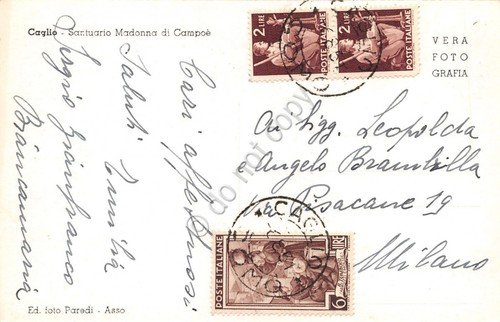 Caglio - Santuario Madonna di Campoè
VERA
FOTO
GRAFIA
2 LIRE
POSTE ITALIANE
2 LIRE
POSTE ITALIANE
Cari affettuosi
Saluti Emilia
Sergio Gianfranco
Biancamaria
Leopolda
Angelo Brambilla
Via Pisacane 19
Milano
CAGLIO
COMO
POSTE ITALIANE
6 LIRE
Ed. foto Paredi - Asso
do not copy